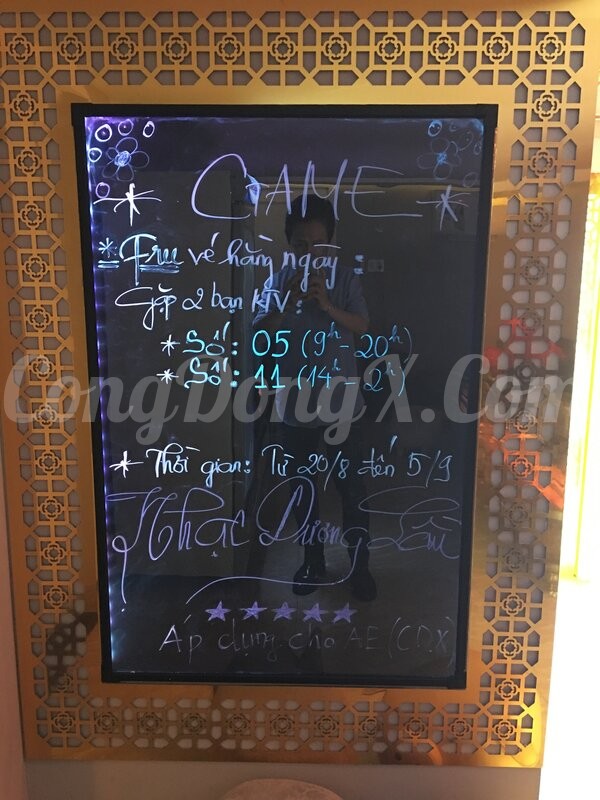 GAME
* Free vé hằng ngày :
Gặp 2 bạn KTV :
* Số : 05 (9h - 20h)
* Số : 11 (14h - 2h)
CongDongX.Com
* Thời gian : Từ 20/8 đến 5/9
Nhạc Dương Lâu
Áp dụng cho AE (CDX)